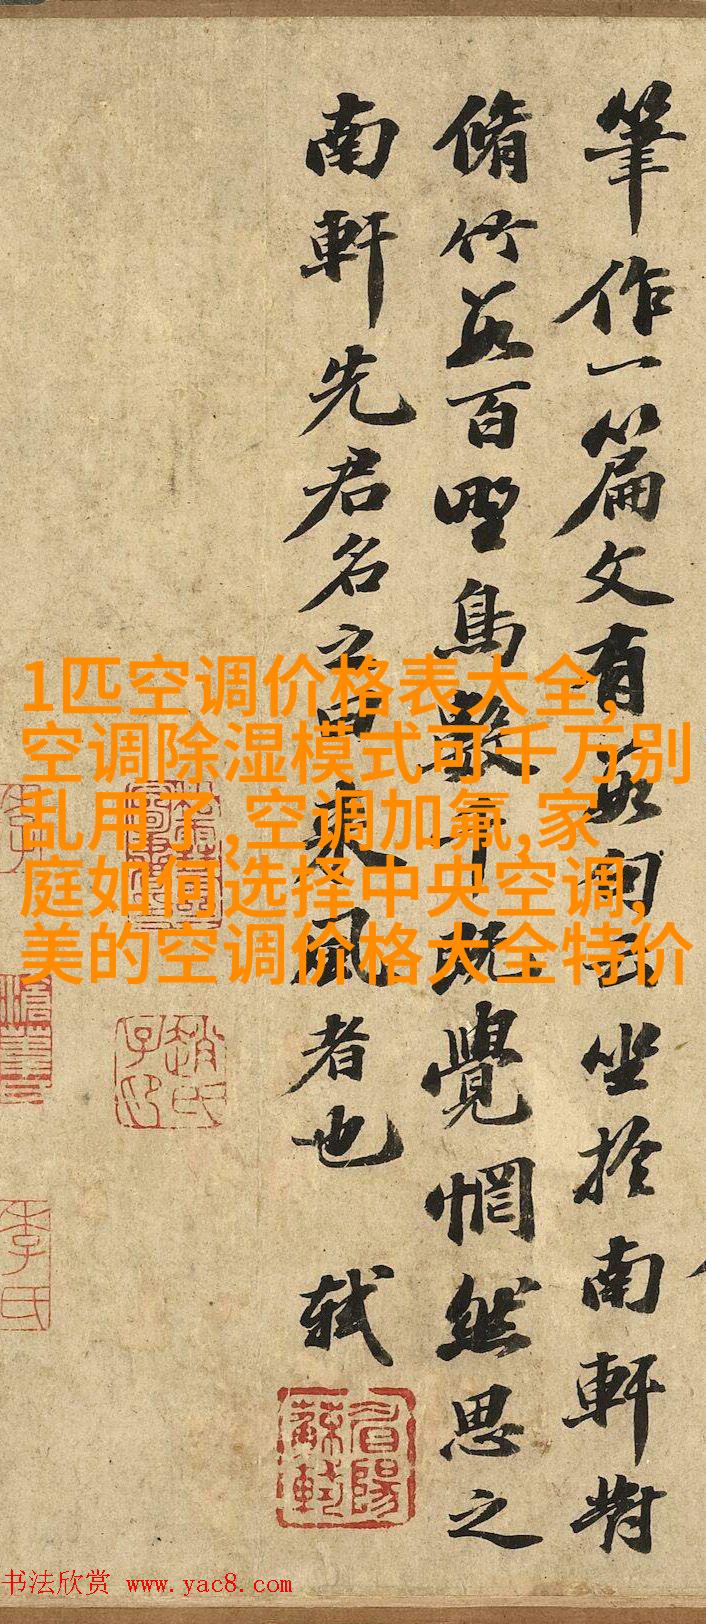 筆作一篇文有數句云坐於南軒對
脩竹數百野鳥數千既覺惘然思之
南軒先君名之曰來風者也 軾
1匹空调价格表大全,
空调除湿模式可千万别
乱用了,空调加氟,家
庭如何选择中央空调,
美的空调价格大全特价
眉陽
蘇軾
李氏
书法欣赏 www.yac8.com